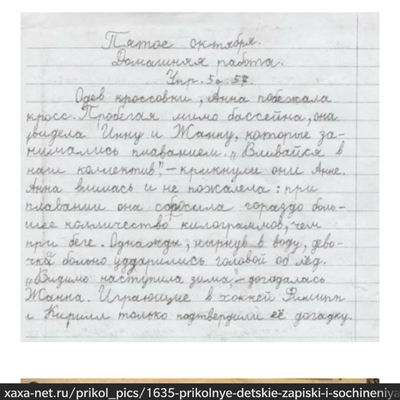 Пятое октября.
Домашняя работа.
Упр. 50. 57.
Одев кроссовки, Анна побежала
кросс. Пробегая мимо бассейна, она
увидела Инну и Жанну, которые за-
нимались плаванием. „Вливайся в
наш коллектив" – крикнули они Анне.
Анна влилась и не пожалела: при
плавании она сбросила гораздо боль-
шее колличество килограммов, чем
при беге. Однажды, нырнув в воду, дево-
чки больно уддарились головой об лёд.
„Видимо наступила зима", – догадалась
Жанна. Играющие в хоккей Филипп
и Кирилл только подтвердили её догадку.
xaxa-net.ru/prikol_pics/1635-prikolnye-detskie-zapiski-i-sochineniya